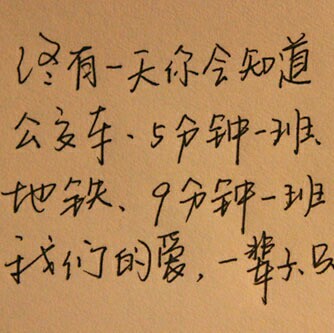 终有一天你会知道
公交车、5分钟一班、
地铁、9分钟一班
我们的爱,一辈子只